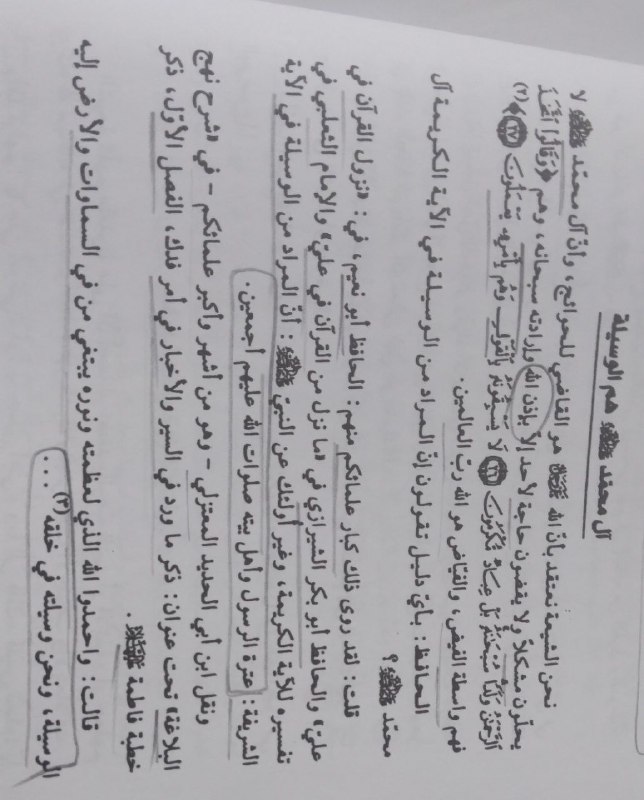 آل محمّد ﷺ هم الوسيلة
نحن الشيعة نعتقد بأنّ الله ﷻ هو القاضي للحوائج، وأنّ آل محمّد ﷺ لا
يحلّون مشكلاً ولا يقضون حاجة لأحد إلاّ بإذن الله وإرادته سبحانه، وهم ﴿وَقَالُوا اتَّخَذَ
الرَّحْمَنُ وَلَدًا سُبْحَانَهُ بَلْ عِبَادٌ مُّكْرَمُونَ ﴿٢٦﴾ لَا يَسْبِقُونَهُ بِالْقَوْلِ وَهُم بِأَمْرِهِ يَعْمَلُونَ ﴿٢٧﴾﴾(٢)
فهم واسطة الفيض، والفيّاض هو الله ربّ العالمين.
الحافظ: بأيّ دليل تقولون إنّ المراد من الوسيلة في الآية الكريمة آل
محمّد ﷺ؟
قلت: لقد روى ذلك كبار علمائكم منهم: الحافظ أبو نعيم، في: «نزول القرآن في
عليّ» والحافظ أبو بكر الشيرازي في «ما نزل من القرآن في عليّ» والإمام الثعلبي في
تفسيره للآية الكريمة، وغير أولئك عن النبي ﷺ: أنّ المراد من الوسيلة في الآية
الشريفة: عترة الرسول وأهل بيته صلوات الله عليهم أجمعين.
ونقل ابن أبي الحديد المعتزلي - وهو من أشهر وأكبر علمائكم - في «شرح نهج
البلاغة» تحت عنوان: ذكر ما ورد في السير والأخبار في أمر فدك، الفصل الأوّل، ذكر
خطبة فاطمة ﷻ.
قالت: واحمدوا الله الذي لعظمته ونوره يبتغي من في السماوات والأرض إليه
الوسيلة، ونحن وسيلته في خلقه(٣)...